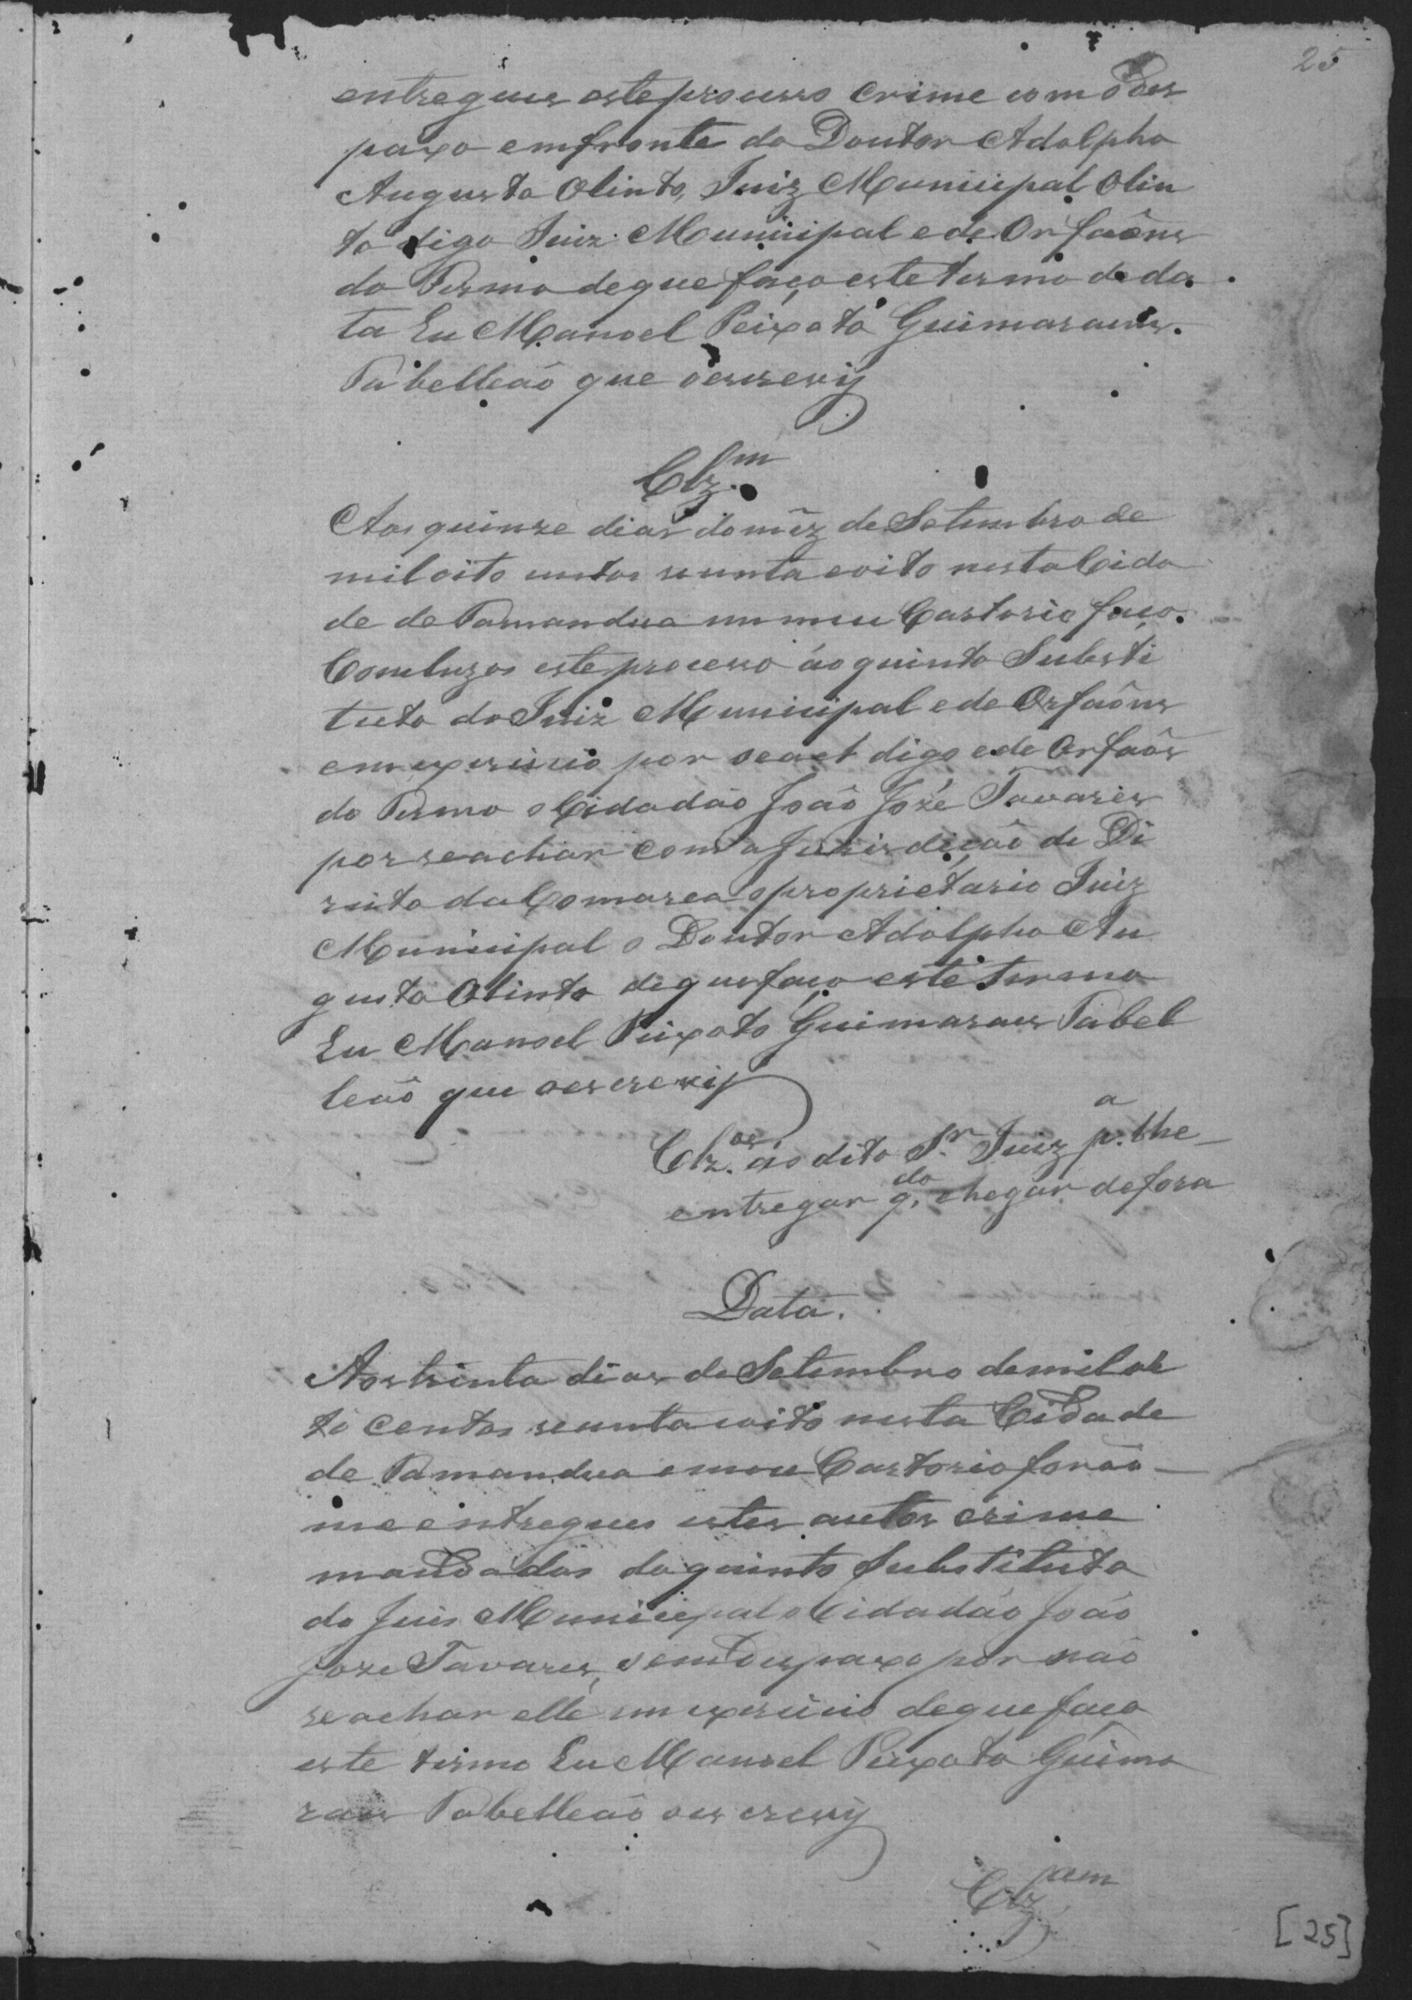 25
entregues este processo crime com o des
paxo emfronte do Doutor Adolpho
Augusto Olinto, Juiz Municipal Olin
to digo Juiz Municipal e de Orfaôns
do Termo de que faço este termo de da
ta Eu Manoel Peixoto Guimaraens.
Tabelleaô que oescrevij
Clz.m
Aos quinze dias do mêz de Setembro de
mil oito centos secenta e oito nesta Cida
de de Tamandua em meu Cartorio faço.
Concluzos este processo ao quinto Substi
tuto do Juiz Municipal e de Orfaôns
em exercicio por seact digo e de Orfaôs
do Termo o Cidadão João Jozé Tavares
por se achar com a Jurisdição de Di
reito da Comarca o proprietario Juiz
Municipal o Doutor Adolpho Au
gusto Olinto de que faço este termo
Eu Manoel Peixoto Guimaraes Tabel
leaô que oescrevij
Clz.os ao dito Sr. Juiz p.a lhe
entregar q.do chegar de fora
Data.
Aos trinta dias de Setembro de mil oi
to centos secenta e oito nesta Cidade
de Tamandua e meu Cartorio foraõ
me entregues estes autos crime
mandados do quinto Substituto
do Juis Municipal o Cidadão João
Joze Tavares, sem Despaxo por naô
se achar elle em exercicio de que faço
este termo Eu Manoel Peixoto Guima
raes Tabelleaô oescrevij
Clzam
[25]